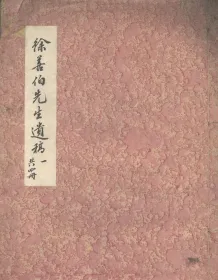 徐善伯先生遺稿 一
共四冊